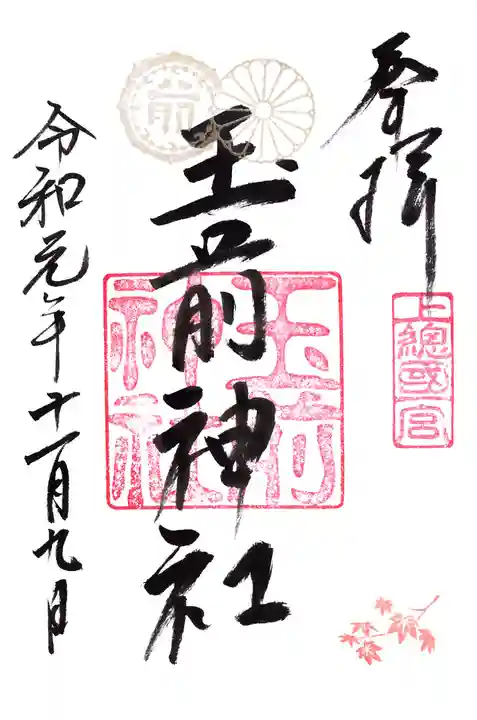 奉拝
上總國一宮
玉前神社
玉前神社
前
令和元年十一月九日